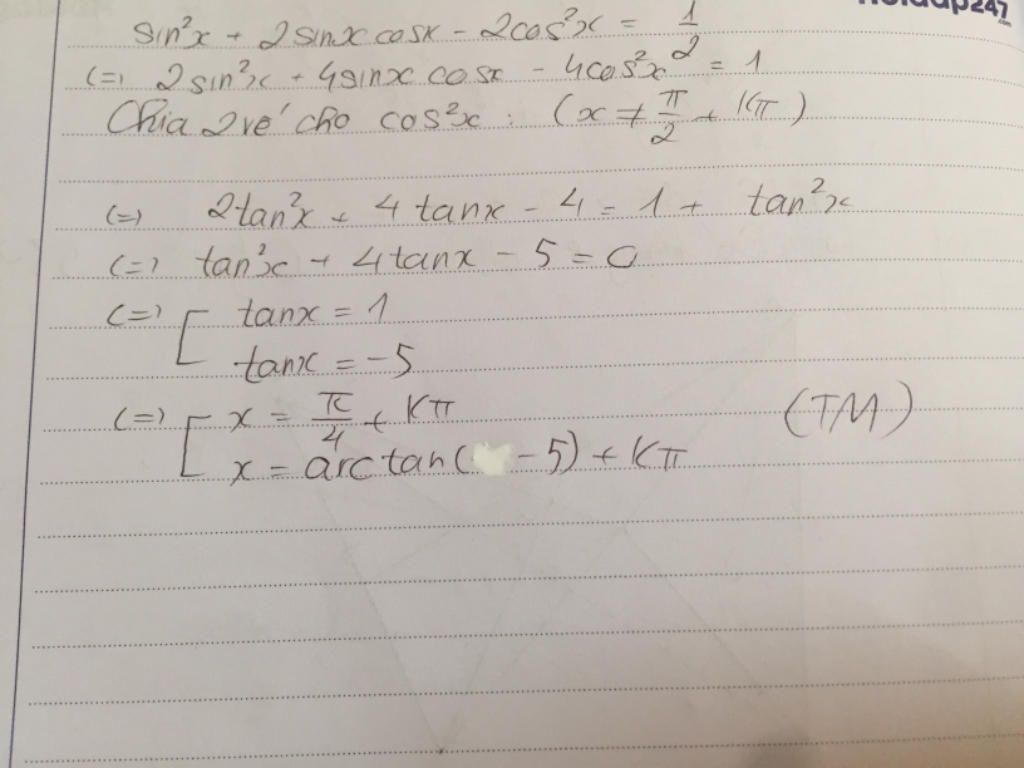 hoidap247
.com
sin²x + 2sinx cosx - 2cos²x = 1/2
(=) 2sin²x + 4sinx cosx - 4cos²x = 1
Chia 2 vế cho cos²x : (x ≠ π/2 + Kπ)
(=) 2tan²x + 4tanx - 4 = 1 + tan²x
(=) tan²x + 4tanx - 5 = 0
(=) [ tanx = 1
tanx = -5
(=) [ x = π/4 + Kπ (TM)
x = arctan( -5) + Kπ